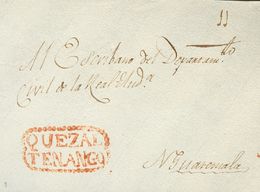 11
Al Escribano del Departam.to
Civil de la Real Aud.a
QUEZAL
TENANGO
N. Guatemala